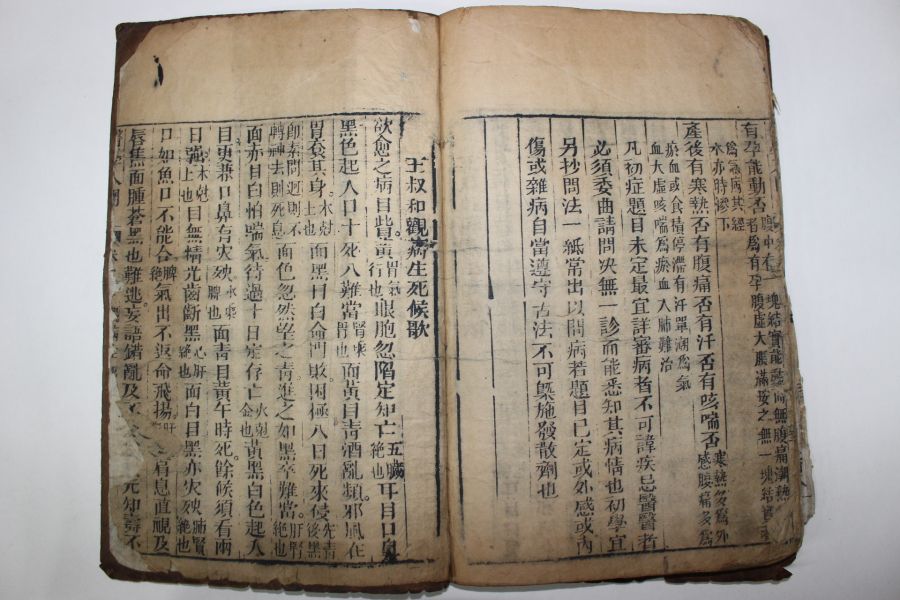 有孕能動否 腹中有一塊結實能動而無腹痛潮熱
者爲有孕腹虛大脹滿按之無一塊結實
爲氣病其經
水亦時滲下
產後有寒熱否有腹痛否有汗否有咳喘否 寒熱多爲外
感腹痛多爲
瘀血或食積停滯有汗單潮爲氣
血大虛咳喘爲瘀血入肺難治
凡初症題目未定最宜詳審病者不可諱疾忌醫醫者
必須委曲請問決無一診而能悉知其病情也初學宜
另抄問法一紙常出以問病若題目已定或外感或內
傷或雜病自當遵守古法不可槩施發散劑也
王叔和觀病生死候歌
欲愈之病目眥黃 胃氣行也 眼胞忽陷定知亡 五臟絕也 耳目口鼻
黑色起入口十死八難當 腎乘胃也 面黃目靑酒亂頻邪風在
胃衰其身 木尅土也 面黑目白命門敗困極八日死來侵 先靑後黑
即素問𢌞則不轉神去則死息 面色忽然望之靑進之如黑卒難當 肝腎絕也
面赤目白怕喘氣待過十日定存亡 火尅金也 黃黑白色起入
目更兼口鼻有災殃 水乘脾也 面靑目黃午時死餘候須看兩
日強 木尅土也 目無精光齒斷黑 心肝絕也 面白目黑亦災殃 肺腎絕也
口如魚口不能合 脾絕 氣出不返命飛揚 肝 肩息直視及
唇焦面腫蒼黑也難逃妄語錯亂及 元知壽不